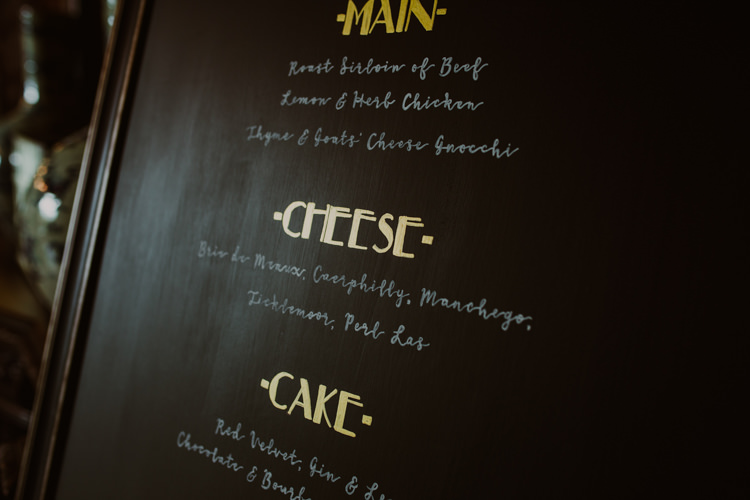 ·MAIN·
Roast Sirloin of Beef
Lemon & Herb Chicken
Thyme & Goats' Cheese Gnocchi
·CHEESE·
Brie de Meaux, Caerphilly, Manchego,
Ticklemoor, Perl Las
·CAKE·
Red Velvet, Gin & Le
Chocolate & Bourb